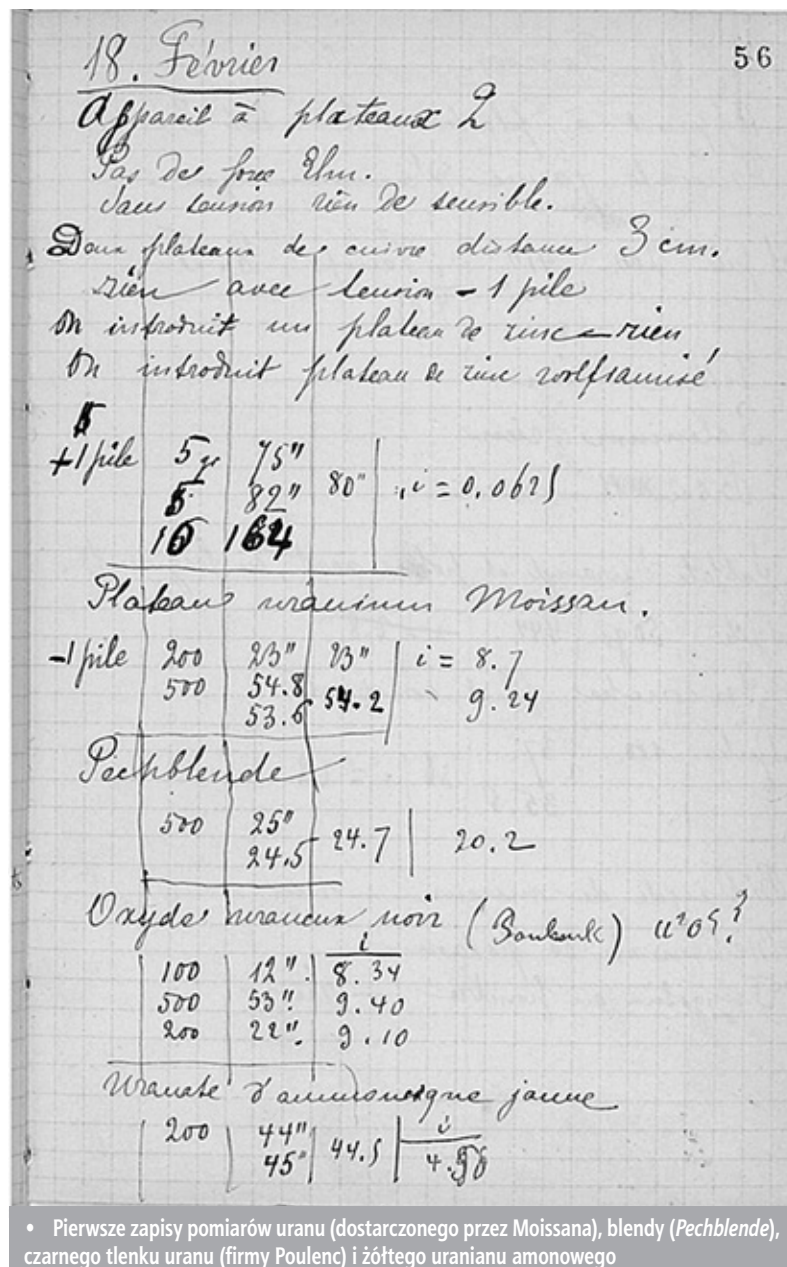 56
18. Février
Appareil à plateaux 2
Pas de force Elm.
Sans tension rien de sensible.
Deux plateaux de cuivre distance 3 cm.
rien avec tension - 1 pile
On introduit un plateau de zinc — rien
On introduit plateau de zinc wolframisé
+1 pile 5 gr 75"
5 82" 80" i = 0.0625
10 164
Plateau uranium Moissan.
-1 pile 200 23" 23" i = 8.7
500 54.8 54.2 9.24
53.6
Pechblende
500 25" 24.7 20.2
24.5
Oxyde uraneux noir ( ) U²O⁵?
i
100 12" 8.34
500 53" 9.40
200 22" 9.10
Uranate d'ammoniaque jaune
i
200 44" 44.5
45"
• Pierwsze zapisy pomiarów uranu (dostarczonego przez Moissana), blendy (Pechblende),
czarnego tlenku uranu (firmy Poulenc) i żółtego uranianu amonowego